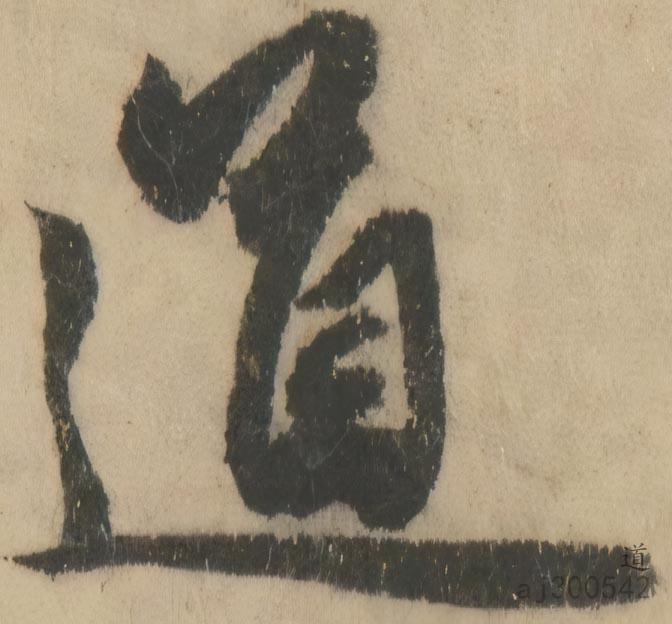 道
道
aj300542